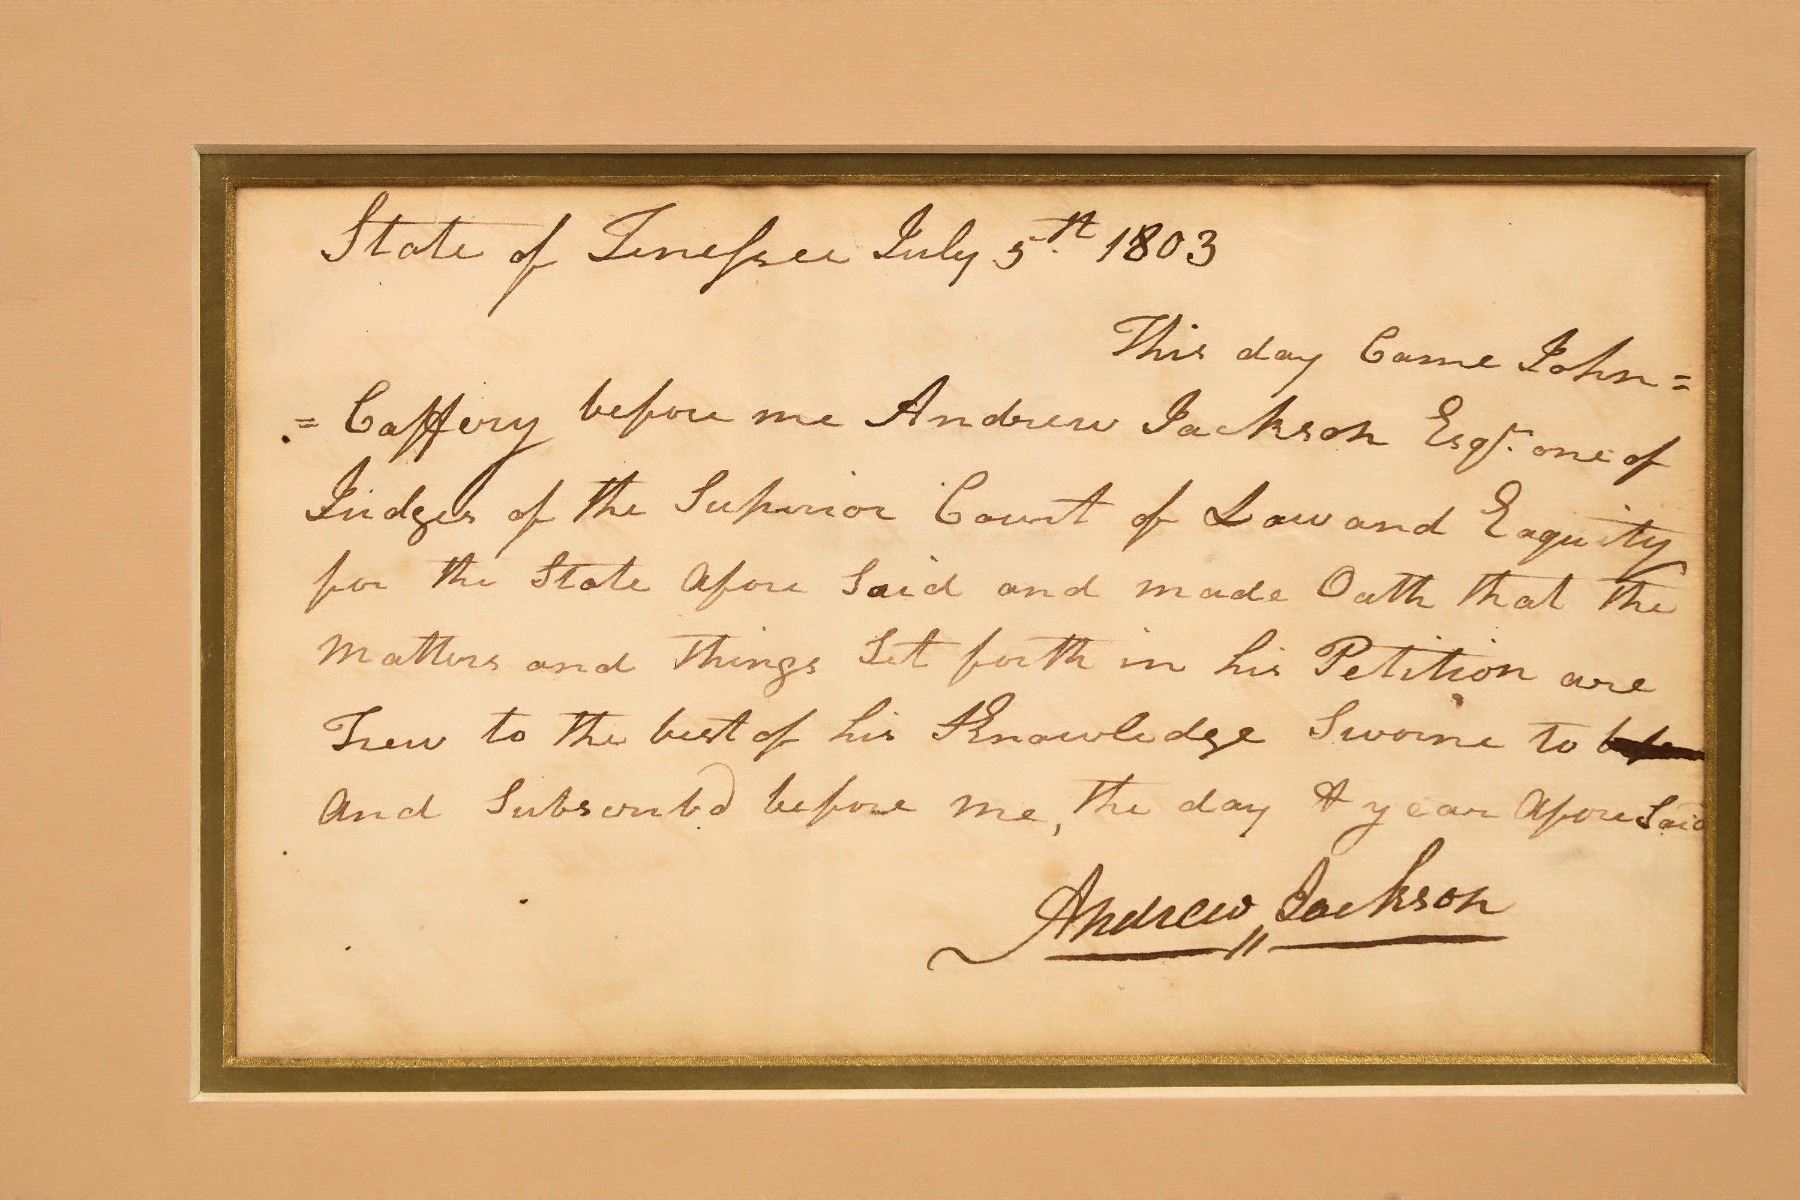 State of Tenessee July 5th 1803
This day Came John=
=Caffery before me Andrew Jackson Esqr. one of
Judges of the Superior Court of Law and Eaquity
for the State afore Said and made Oath that the
matters and things Set forth in his Petition are
Trew to the best of his Knowledge Sworne to
and Subscribd before me, the day & year afore Said
Andrew Jackson